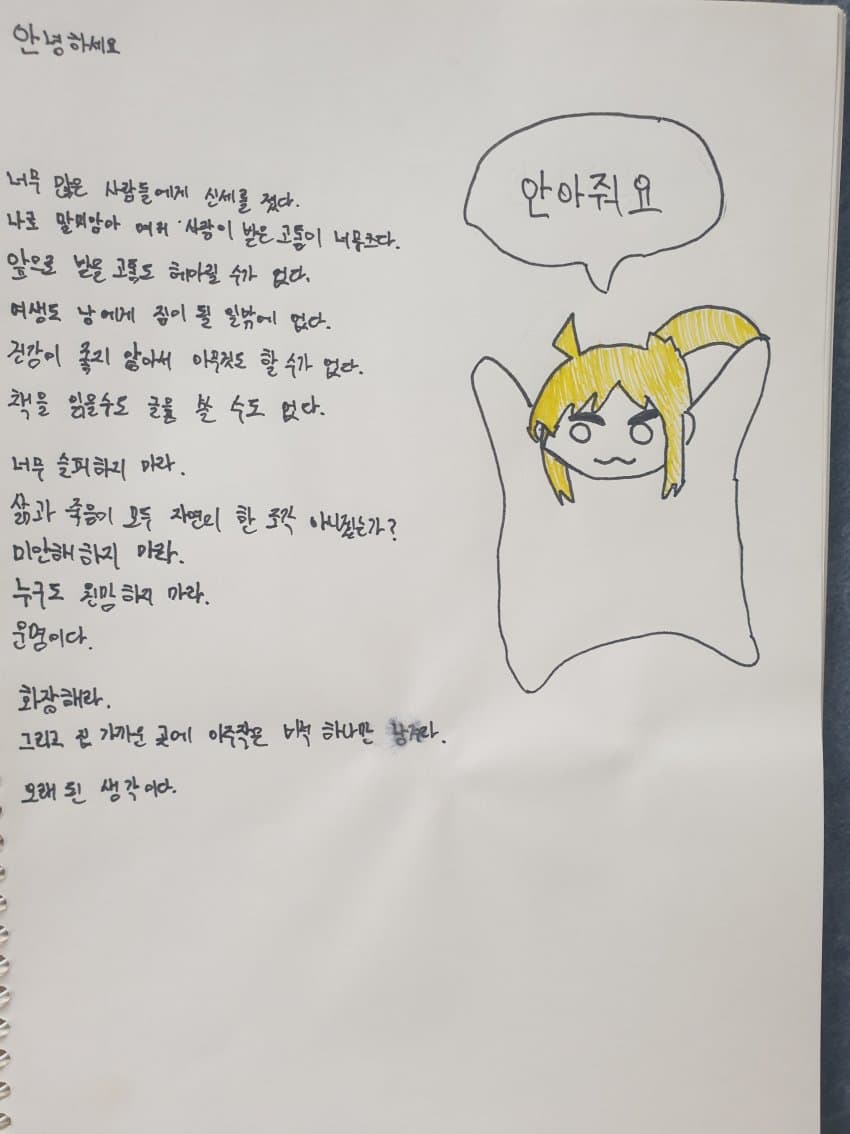 안녕하세요
너무 많은 사람들에게 신세를 졌다.
나로 말미암아 여러 사람이 받은 고통이 너무크다.
앞으로 받을 고통도 헤아릴 수가 없다.
여생도 남에게 짐이 될 일밖에 없다.
건강이 좋지 않아서 아무것도 할 수가 없다.
책을 읽을수도 글을 쓸 수도 없다.
너무 슬퍼하지 마라.
삶과 죽음이 모두 자연의 한 조각 아니겠는가?
미안해하지 마라.
누구도 원망하지 마라.
운명이다.
화장해라.
그리고 집 가까운 곳에 아주작은 비석 하나만 남겨라.
오래 된 생각이다.
안아줘요